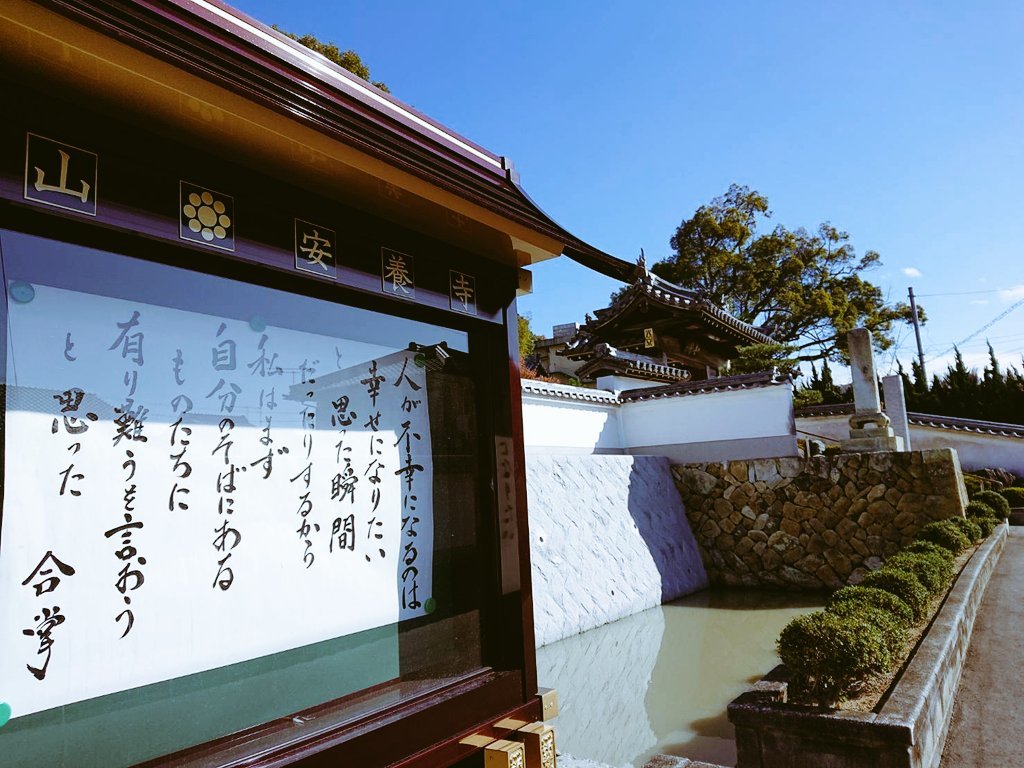 山 安養寺
人が不幸になるのは
幸せになりたい
と思った瞬間
だったりするから
私はまず
自分のそばにある
ものたちに
有り難うと言おう
と思った
合掌